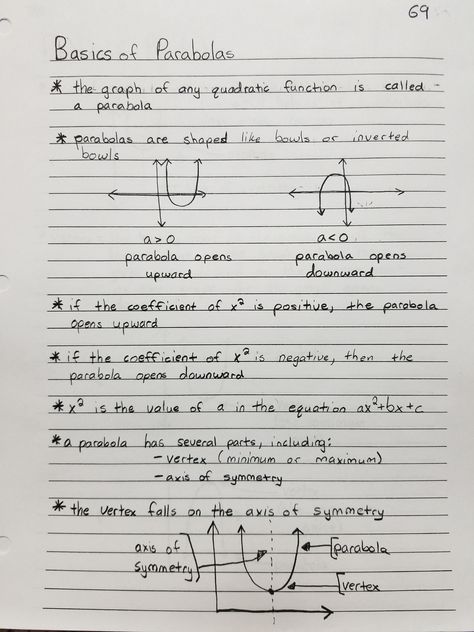 69
Basics of Parabolas
* the graph of any quadratic function is called -
a parabola
* parabolas are shaped like bowls or inverted
bowls
a > 0
a < 0
parabola opens
upward
parabola opens
downward
* if the coefficient of x² is positive, the parabola
opens upward
* if the coefficient of x² is negative, then the
parabola opens downward
* x² is the value of a in the equation ax²+bx+c
* a parabola has several parts, including:
- vertex (minimum or maximum)
- axis of symmetry
* the vertex falls on the axis of symmetry
axis of
symmetry
parabola
vertex